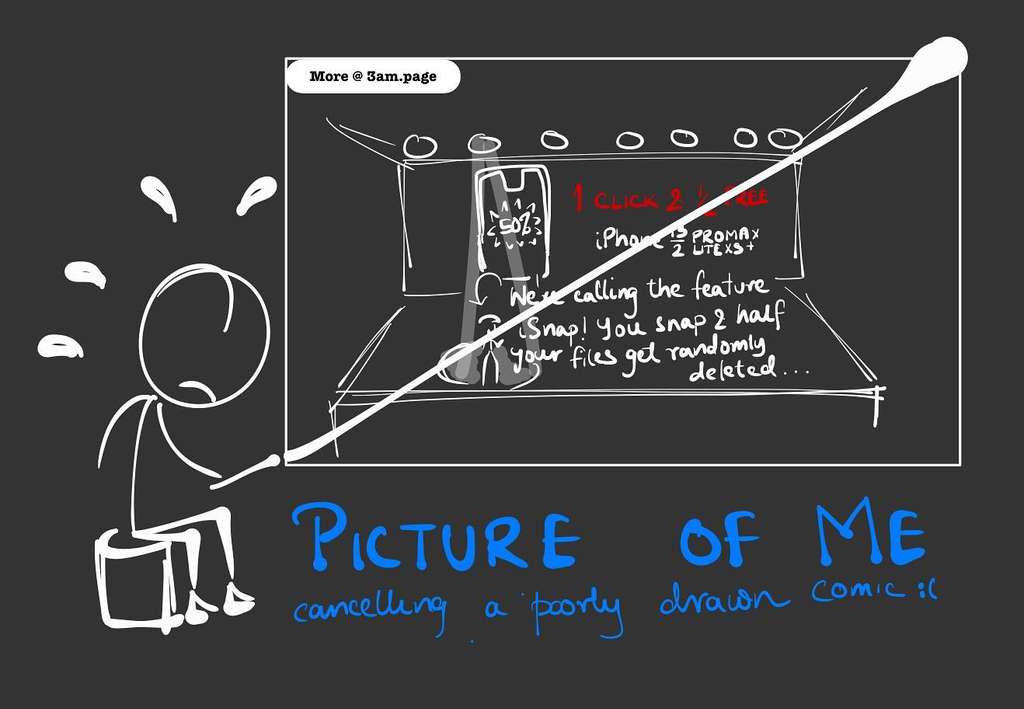 More @ 3am.page
1 CLICK 2 ½ FREE
50%
iPhone 15/2 PROMAX
LITE XS+
We're calling the feature
iSnap! You snap & half
your files get randomly
deleted...
PICTURE OF ME
cancelling a poorly drawn comic :(